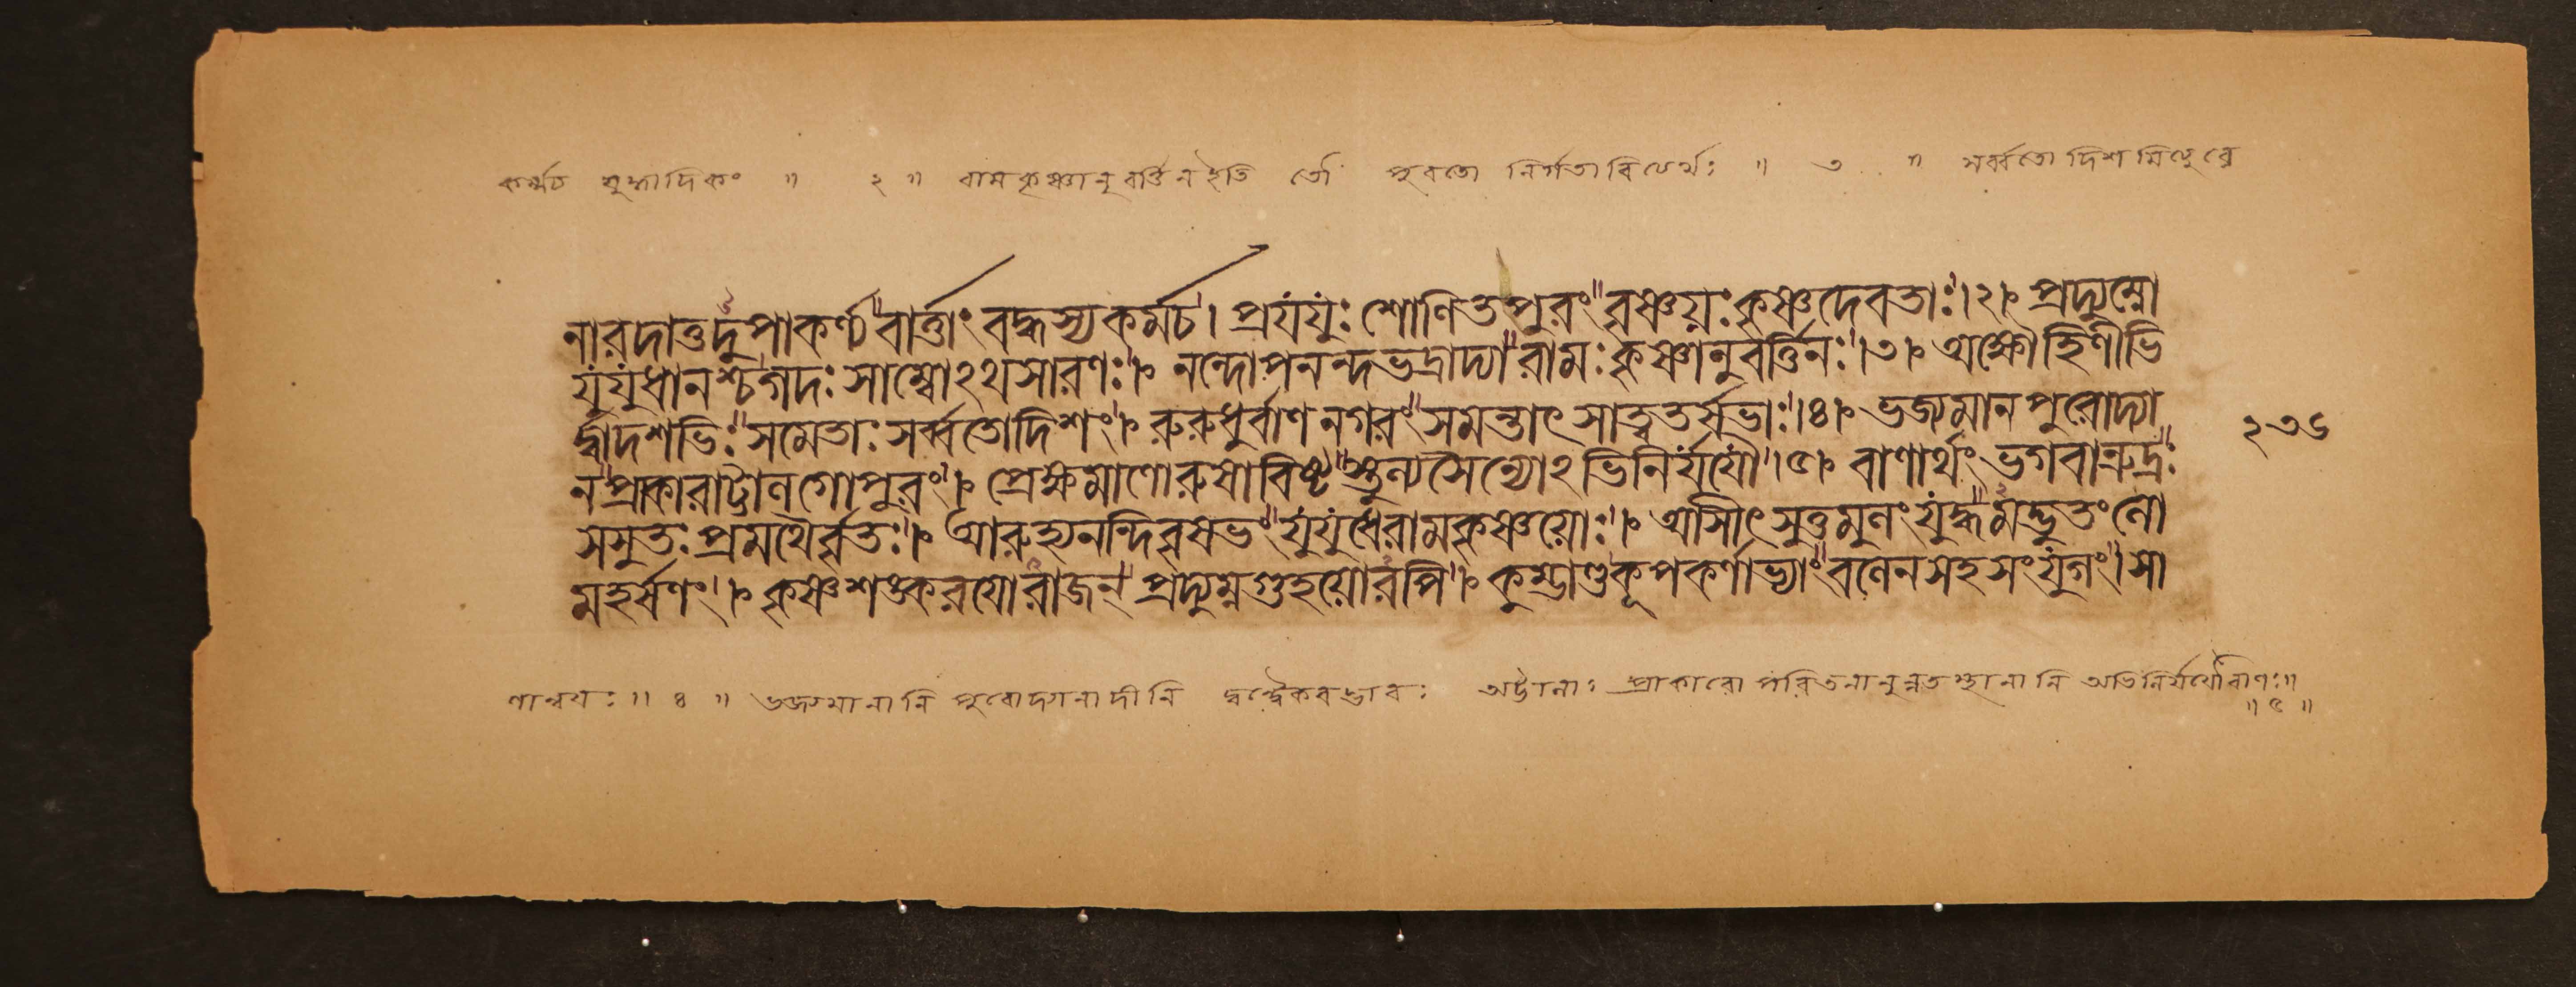 কর্ম্মচ যুদ্ধাদিকং ॥ ২ ॥ রামকৃষ্ণানুবর্ত্তিন ইতি তৌ পুরতো নির্গতাবিত্যর্থঃ ॥ ৩ ॥ সর্ব্বতো দিশমিত্যুরে
নারদাত্তদুপাকর্ণ্য বার্ত্তাং বদ্ধস্য কর্মচ। প্রযযুঃ শোণিতপুরং বৃষ্ণয়ঃ কৃষ্ণদেবতাঃ।২। প্রদ্যুম্নো
যুযুধানশ্চ গদঃ সাম্বোঽথ সারণঃ। নন্দোপনন্দভদ্রাদ্যা রামঃ কৃষ্ণানুবর্ত্তিনঃ।৩। অক্ষৌহিণীভি
র্দ্বাদশভিঃ সমেতাঃ সর্ব্বতোদিশং। রুরুধুর্বাণনগরং সমন্তাৎ সাত্বতর্সভাঃ।৪। ভজ্যমানপুরোদ্যা
নপ্রাকারাট্টালগোপুরং। প্রেক্ষমাণোরুষাবিষ্ট স্তুল্যসৈন্যোঽভিনির্যযৌ।৫। বাণার্থং ভগবান্রুদ্রঃ
সসুতঃ প্রমথৈর্বৃতঃ। আরুহ্যনন্দিবৃসভং যুযুধেরামকৃষ্ণয়োঃ। আসীৎ সুতুমুলং যুদ্ধমদ্ভুতং লো
মহর্সণং। কৃষ্ণশঙ্করযোরাজন্ প্রদ্যুম্নগুহয়োরপি। কুম্ভাণ্ডকূপকর্ণাভ্যাং বলেনসহসংযুগং। সা
২৩৬
ণান্বয়ঃ ॥ ৪ ॥ ভজ্যমানানি পুরোদ্যানাদীনি দ্বন্দ্বৈকবদ্ভাবঃ অট্টালাঃ প্রাকারোপরিতনানুন্নতস্থানানি অভিনির্যযৌ বাণঃ॥
॥ ৫ ॥